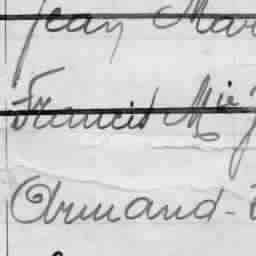 Jean Mar
Francis Mie J
Armand-